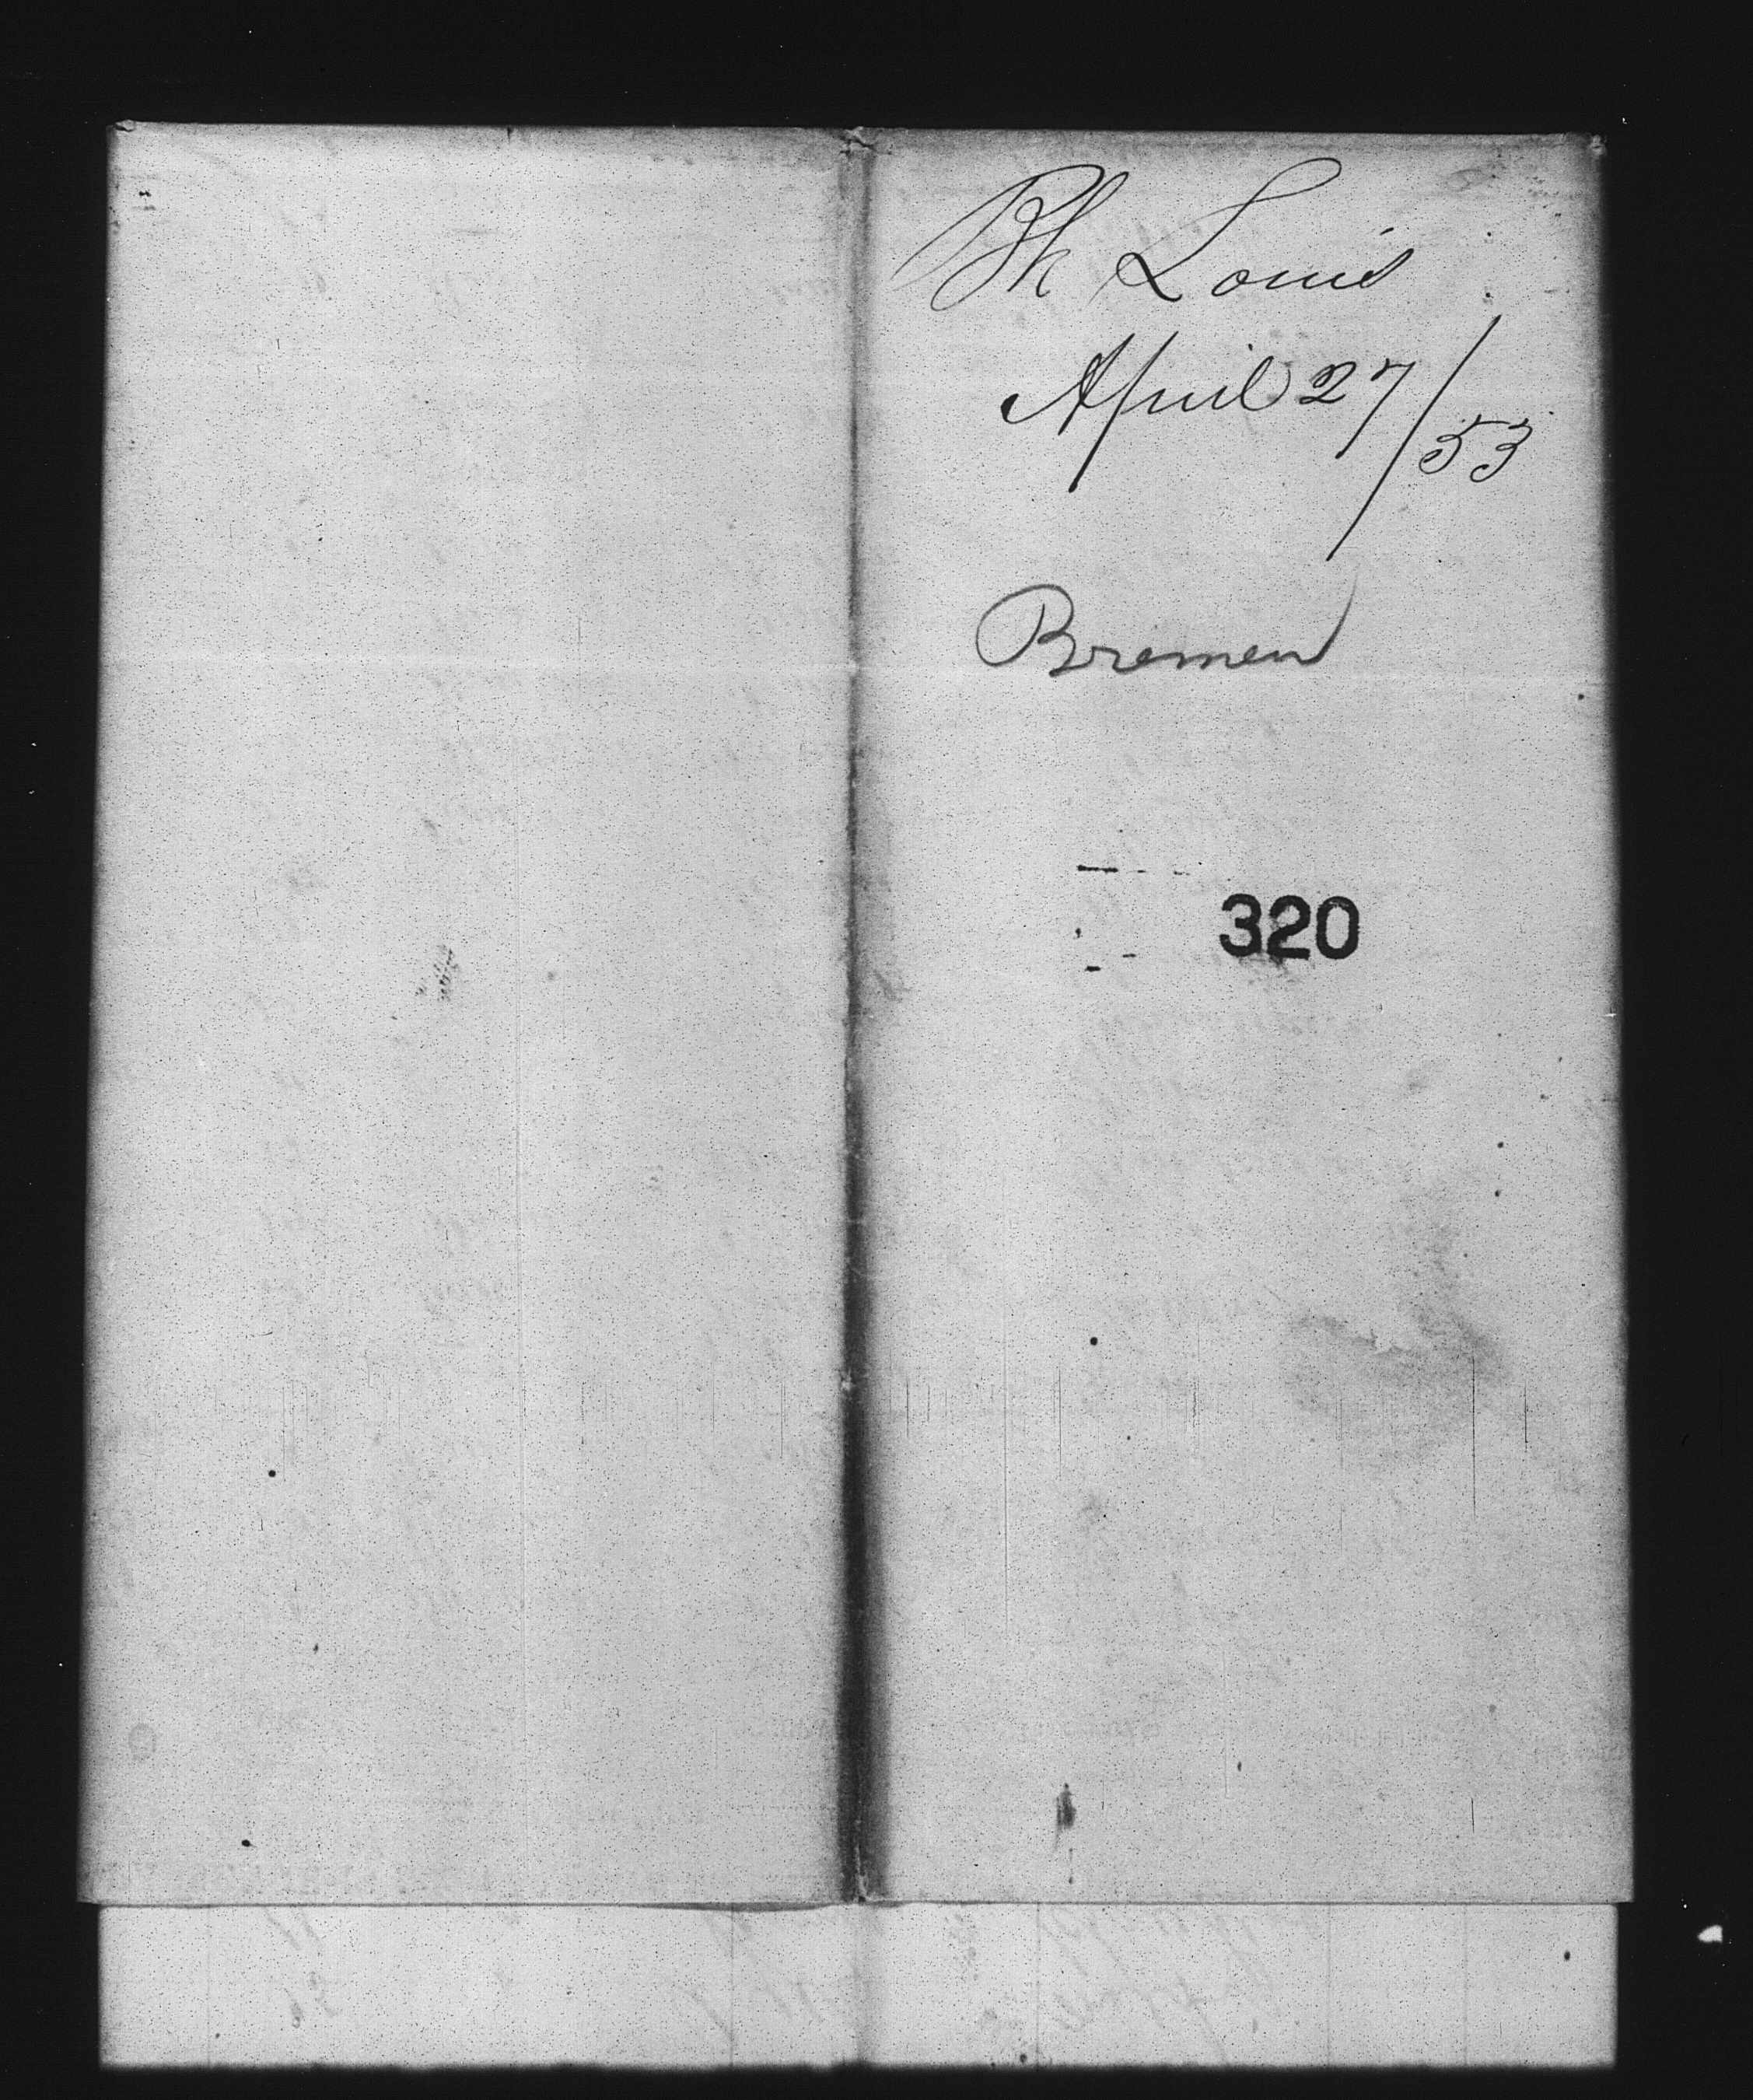 Bk Louis
April 27/53
Bremen
320